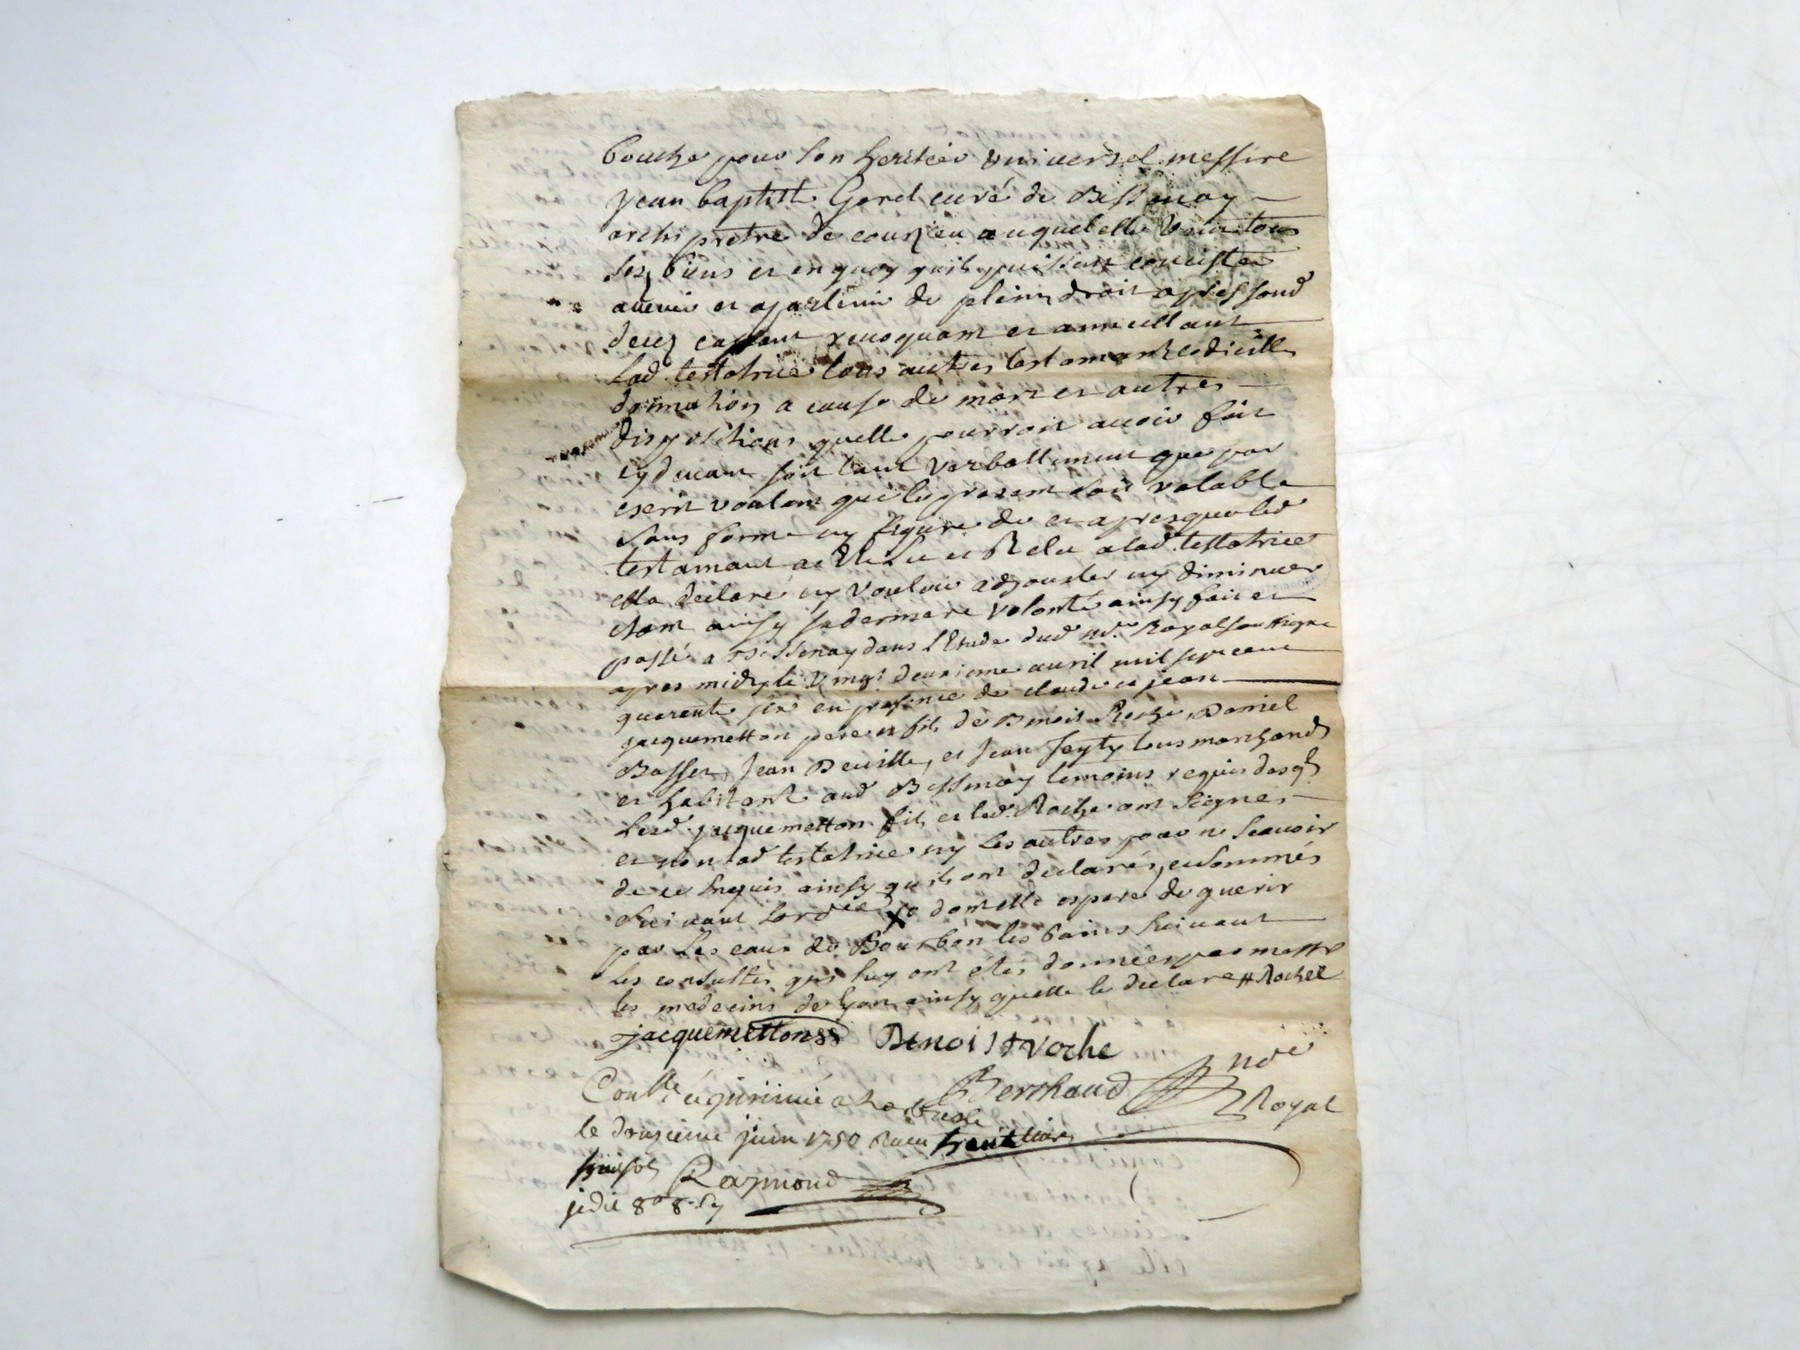 bouche pour son heritier universel messire
jean baptist Gorel curé de Bessenay
archiprètre de courzieu auquel elle veut tous
ses biens et en quoy quils puissent concister
avenir et apartenir de plein droit apres sond
deces cassant revoquant et annullant
lad. testatrice tous autres testamant codicille
donnation a cause de mort et autres
dispositions quelle pourroit avoir fait
cydevant soit tant verballement que par
escrit voulant que le present soit valable
sans forme ny figure de et apres que led
testamant a été lu et Relu a lad. testatrice
ella declaré ny vouloir adjouster ny diminuer
etant ainsy sa derniere volonté ainsy fait et
passé a Bessenay dans l'Etude dud nore. Royal soussigne
apres midy le vingt deuxieme avril mil sept cent
quarente six en presence de claude et jean
jacquemetton pere et fils de Benoit Roche, Daniel
Basset, Jean Deville, et Jean feyty tous marchands
et habitant aud Bessenay temoins requis desqls
lesd. jacquemetton fils et led. Roche ont signés
et non lad testatrice ny les autres pour ne scavoir
de ce Enquis ainsy quils ont declarés, et sommés
suivant lordce X dont elle espere de guerir
par les eaux de Bourbon les bains suivant
les consultes qui luy ont étés données par messrs
les medecins de lyon ainsy quelle le declare # Roche
jacquemettonss Benoist roche
Berthaud nore
Royal
Conlle. et insinué a
le douzieme juin 1750 Recu treize livres
huit sols Raymond
jedit